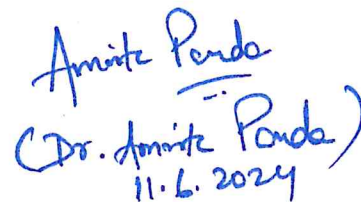 Amrita Panda
(Dr. Amrita Panda)
11.6.2024